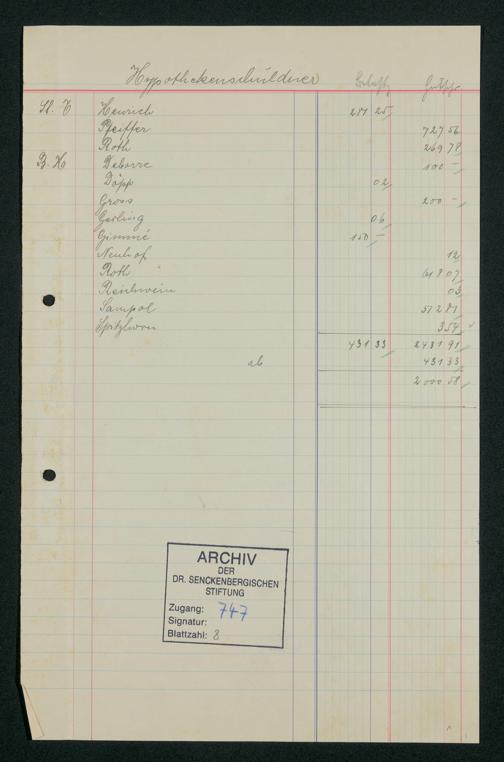 Hypothekenschuldner Belast. Gutschr.
St. T Heinrich 281 25
Pfeiffer 727 56
Roth 269 78
B. H Delorre 100 -
Döpp 02
Gross 200 -
Gerling 06
Gimmé 150 -
Neuhof 12
Roth 618 07
Reichwein 03
Sampol 512 81
Spitzhorn 3 54
431 33 2431 91
ab 431 33
2000 58
ARCHIV
DER
DR. SENCKENBERGISCHEN
STIFTUNG
Zugang: 747
Signatur:
Blattzahl: 8